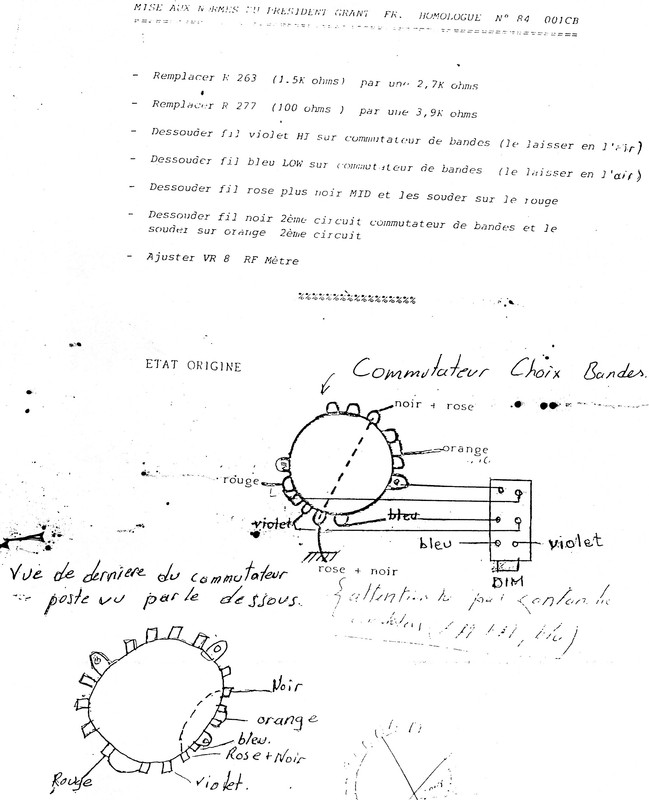 MISE AUX NORMES DU PRESIDENT GRANT FR. HOMOLOGUE N° 84 001CB
- Remplacer R 263 (1.5K ohms) par une 2,7K ohms
- Remplacer R 277 (100 ohms ) par une 3,9K ohms
- Dessouder fil violet HI sur commutateur de bandes (le laisser en l'air)
- Dessouder fil bleu LOW sur commutateur de bandes (le laisser en l'air)
- Dessouder fil rose plus noir MID et les souder sur le rouge
- Dessouder fil noir 2ème circuit commutateur de bandes et le
souder sur orange 2ème circuit
- Ajuster VR 8 RF Mètre
%%%%%%%%%%%%%%%%%
ETAT ORIGINE
Commutateur Choix Bandes.
noir + rose
orange
rouge
violet
bleu
bleu
violet
rose + noir
DIM
Vue de derniere du commutateur
poste vu par le dessous.
attention
Noir
orange
bleu.
Rose+Noir
violet.
Rouge